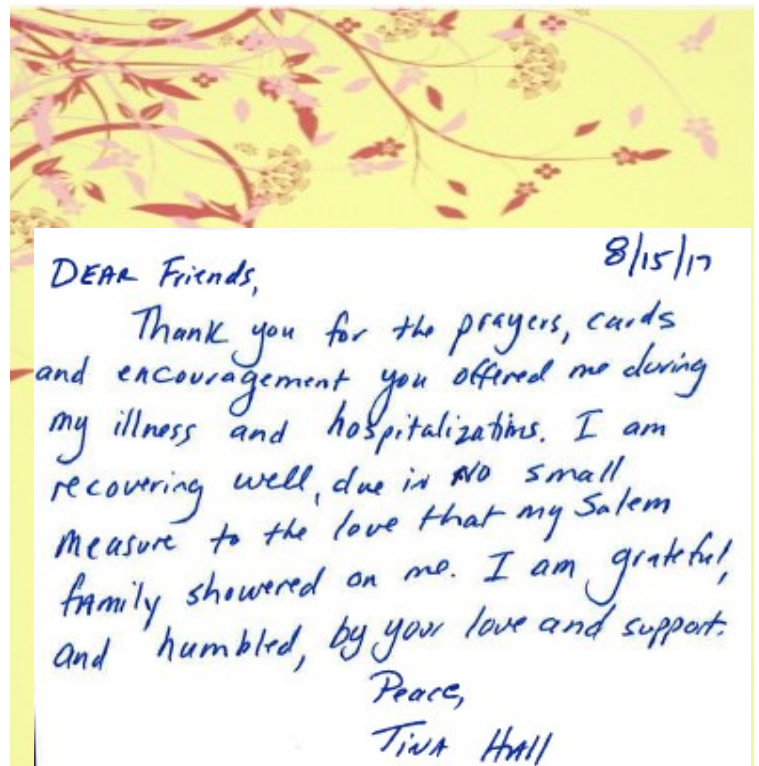 8/15/17
DEAR Friends,
Thank you for the prayers, cards
and encouragement you offered me during
my illness and hospitalizations. I am
recovering well, due in NO small
measure to the love that my Salem
family showered on me. I am grateful,
and humbled, by your love and support.
Peace,
TINA HALL